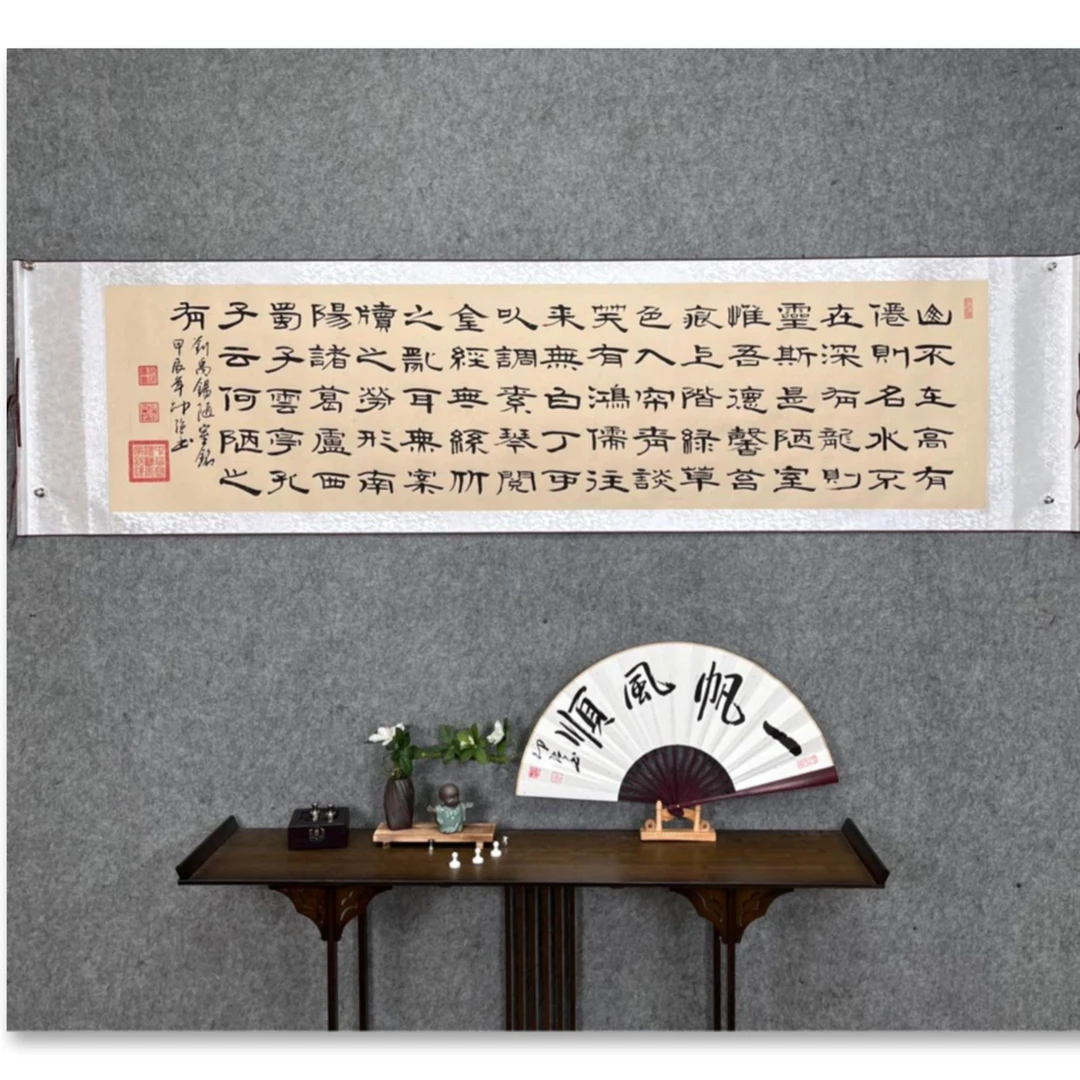 山不在高有
僊則名水不
在深有龍則
靈斯是陋室
惟吾德馨苔
痕上階緑草
色入帘青談
笑有鴻儒往
来無白丁可
以調素琴閱
金經無絲竹
之亂耳無案
牘之勞形南
陽諸葛廬西
蜀子雲亭孔
子云何陋之
有
劉禹錫陋室銘
甲辰年
書
一帆風順